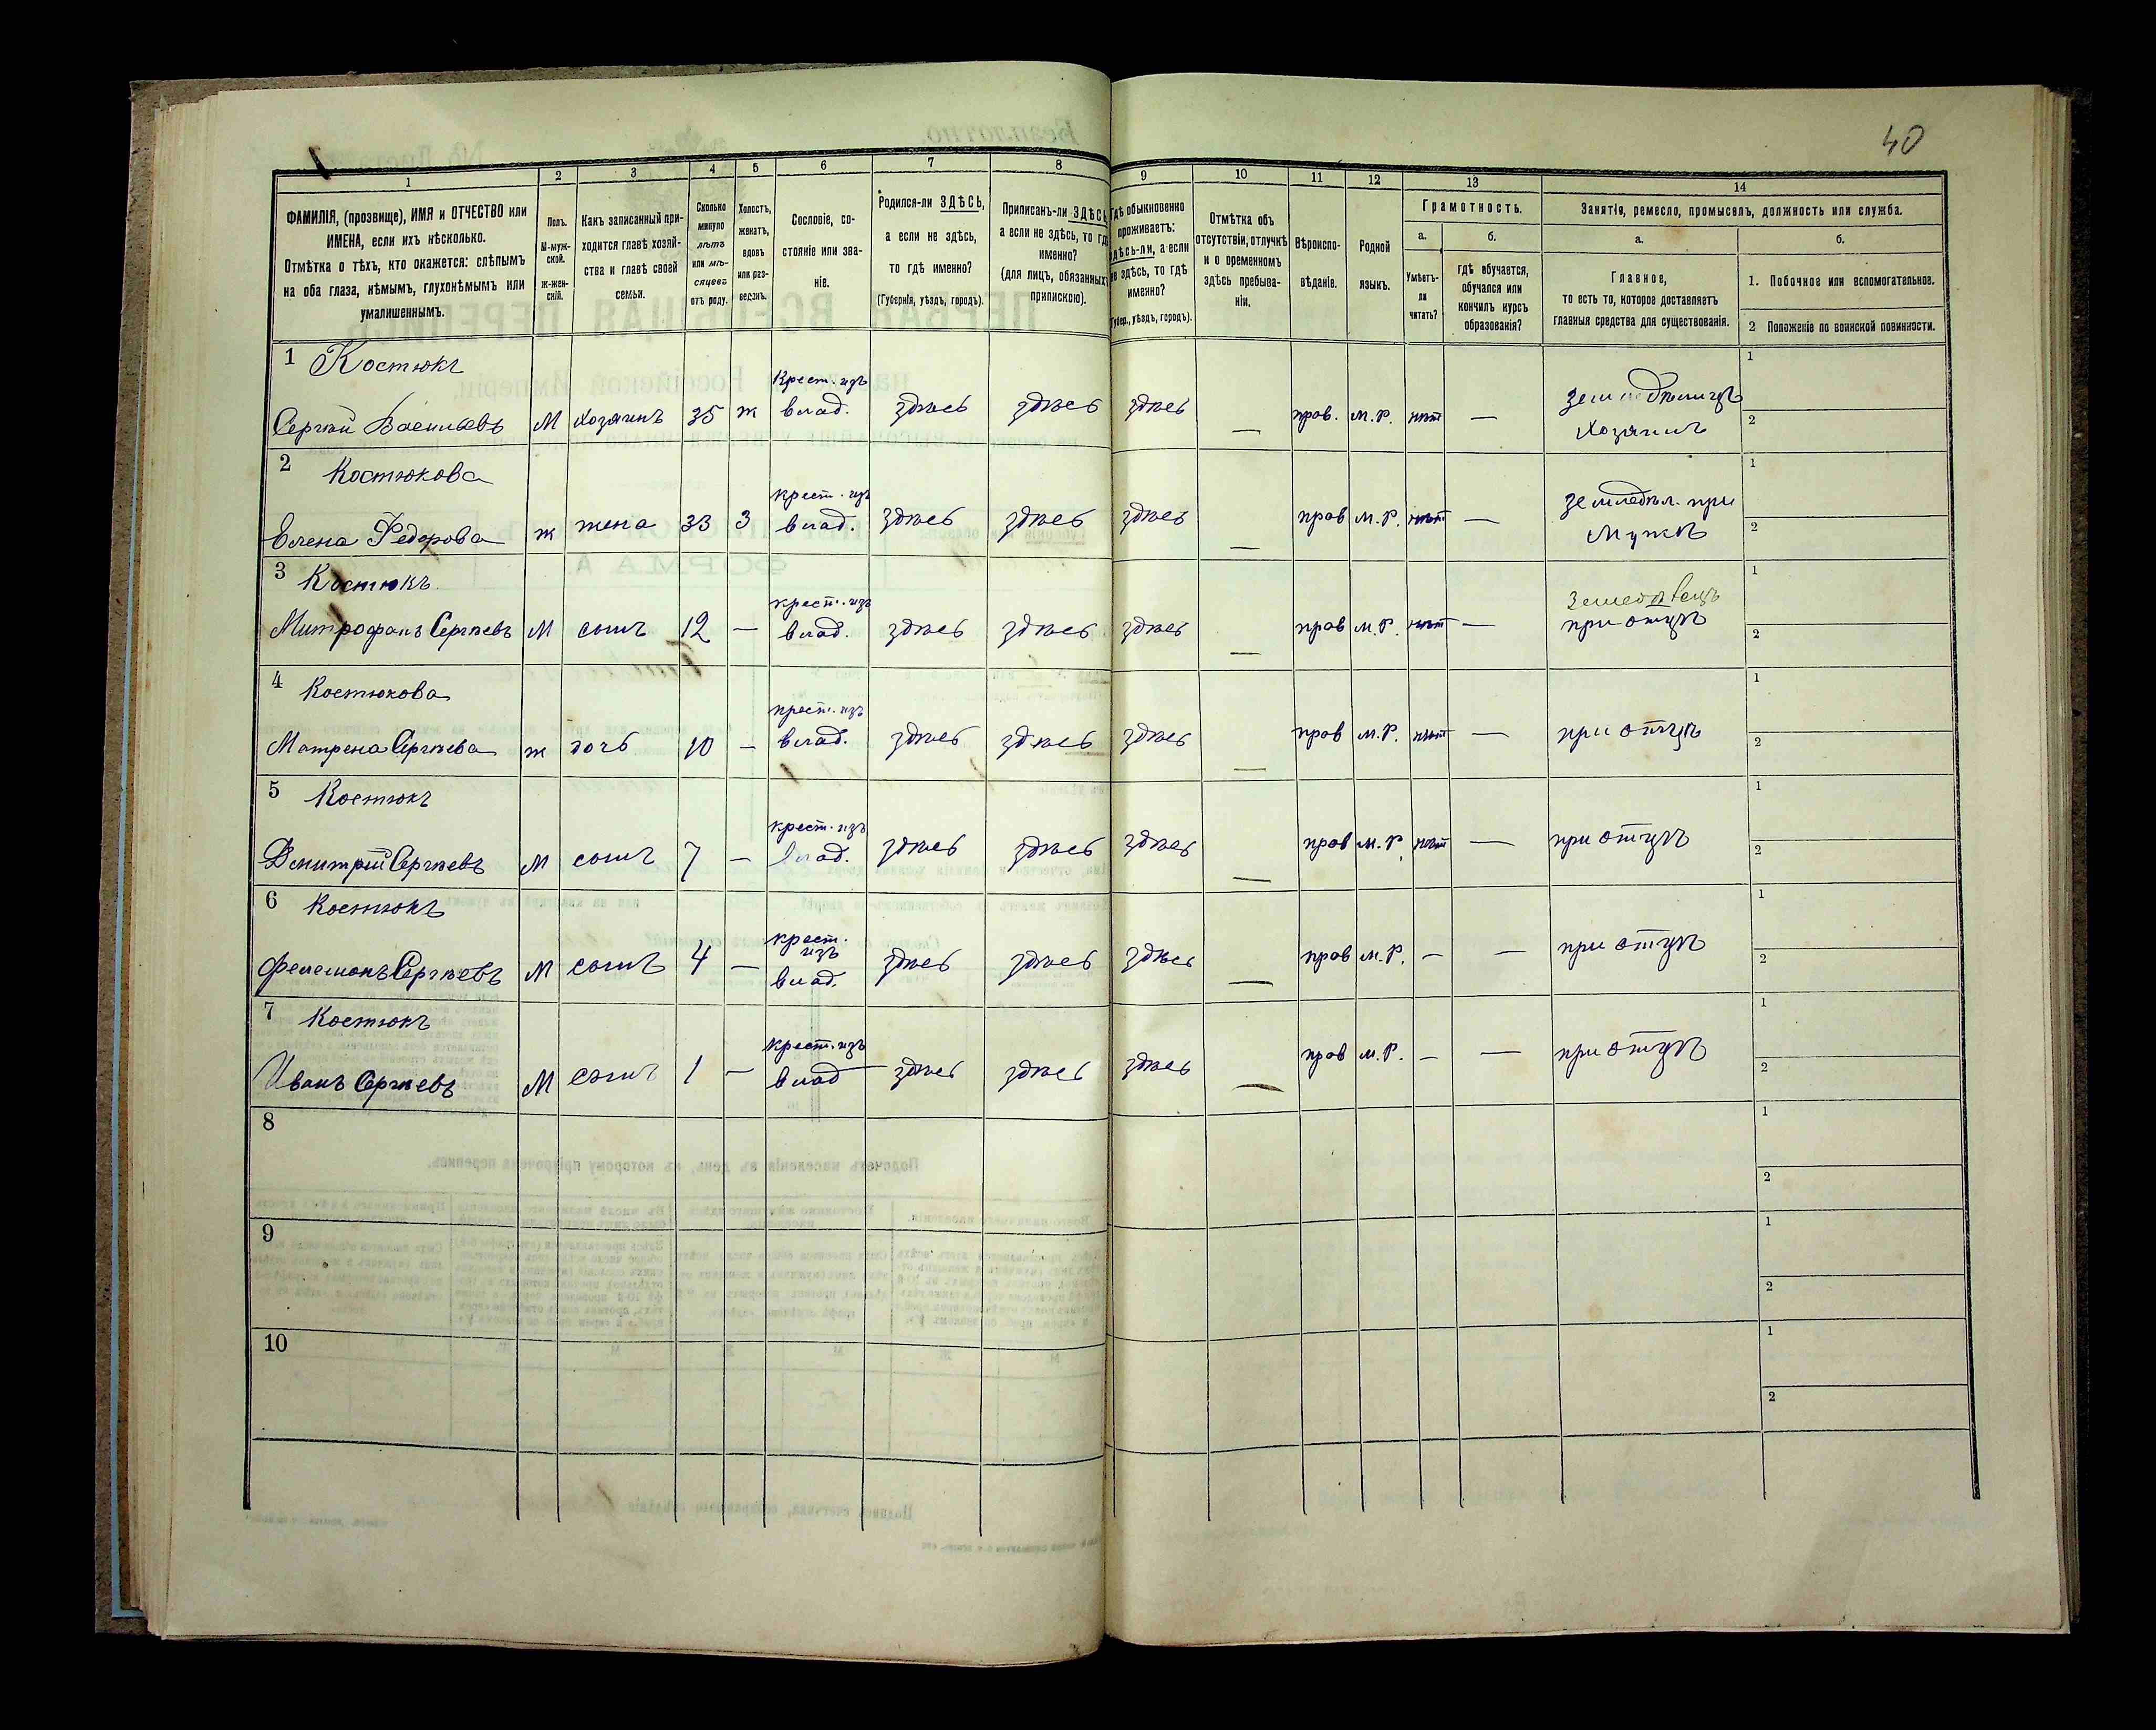 40
1
2
3
4
5
6
7
8
9
10
11
12
13
14
ФАМИЛІЯ, (прозвище), ИМЯ и ОТЧЕСТВО или
ИМЕНА, если ихъ нѣсколько.
Отмѣтка о тѣхъ, кто окажется: слѣпымъ
на оба глаза, нѣмымъ, глухонѣмымъ или
умалишеннымъ.
Полъ.
М-муж-
ской.
Ж-жен-
скій.
Какъ записанный при-
ходится главѣ хозяй-
ства и главѣ своей
семьи.
Сколько
минуло
лѣтъ
или мѣ-
сяцевъ
отъ роду.
Холостъ,
женатъ,
вдовъ
или раз-
веденъ.
Сословіе, со-
стояніе или зва-
ніе.
Родился-ли ЗДѢСЬ,
а если не здѣсь,
то гдѣ именно?
(Губернія, уѣздъ, городъ).
Приписанъ-ли ЗДѢСЬ,
а если не здѣсь, то гдѣ
именно?
(для лицъ, обязанныхъ
припискою).
Гдѣ обыкновенно
проживаетъ:
здѣсь-ли, а если
не здѣсь, то гдѣ
именно?
(Губер., уѣздъ, городъ).
Отмѣтка объ
отсутствіи, отлучкѣ
и о временномъ
здѣсь пребыва-
ніи.
Вѣроиспо-
вѣданіе.
Родной
языкъ.
Грамотность.
а.
б.
Умѣетъ-
ли
читать?
гдѣ обучается,
обучался или
кончилъ курсъ
образованія?
Занятіе, ремесло, промыселъ, должность или служба.
а.
б.
Главное,
то есть то, которое доставляетъ
главныя средства для существованія.
1. Побочное или вспомогательное.
2 Положеніе по воинской повинности.
1 Костюкъ
Сергѣй Васильевъ М Хозяинъ 35 ж Крест. изъ влад. здѣсь здѣсь здѣсь — прав. м.р. нѣт — земледѣлицъ Хозяинъ 1 2
2 Костюкова
Елена Федорова ж жена 33 З крест. изъ влад. здѣсь здѣсь здѣсь — прав м.р. нѣт — земледѣл. при Мужѣ 1 2
3 Костюкъ
Митрофанъ Сергѣевъ М сынъ 12 — крест. изъ влад. здѣсь здѣсь здѣсь — прав м.р. нѣт — при отцѣ 1 2
4 Костюкова
Матрена Сергѣева ж дочь 10 — крест. изъ влад. здѣсь здѣсь здѣсь — прав м.р. нѣт — при отцѣ 1 2
5 Костюкъ
Дмитрій Сергѣевъ М сынъ 7 — крест. изъ влад. здѣсь здѣсь здѣсь — прав м.р. нѣт — при отцѣ 1 2
6 Костюкъ
Филемонъ Сергѣевъ М сынъ 4 — крест. изъ влад. здѣсь здѣсь здѣсь — прав м.р. — — при отцѣ 1 2
7 Костюкъ
Иванъ Сергѣевъ М сынъ 1 — крест. изъ влад здѣсь здѣсь здѣсь — прав м.р. — — при отцѣ 1 2
8 1 2
9 1 2
10 1 2